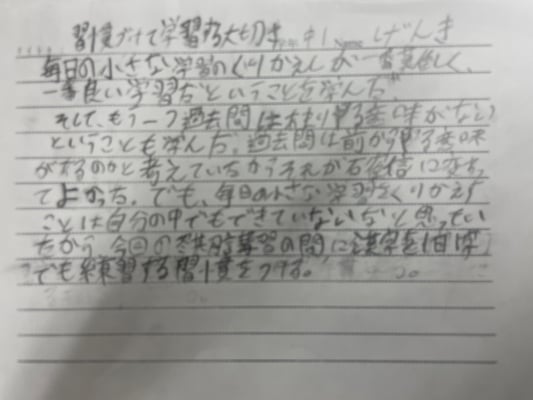 習慣づけて学習する大切さ 中1 げんき
毎日の小さな学習のくりかえしが一番美しく、
一番良い学習だということを学んだ。
そして、もう一つ過去問はあまりやる意味がない
ということも学んだ。過去問は前からやる意味
があるのかと考えていたからそれが確信に変わっ
てよかった。でも、毎日の小さな学習をくりかえす
ことは自分の中でもできていないなと思ってい
たから、今回の 講習の間に漢字を1日1字
でも練習する習慣をつける。